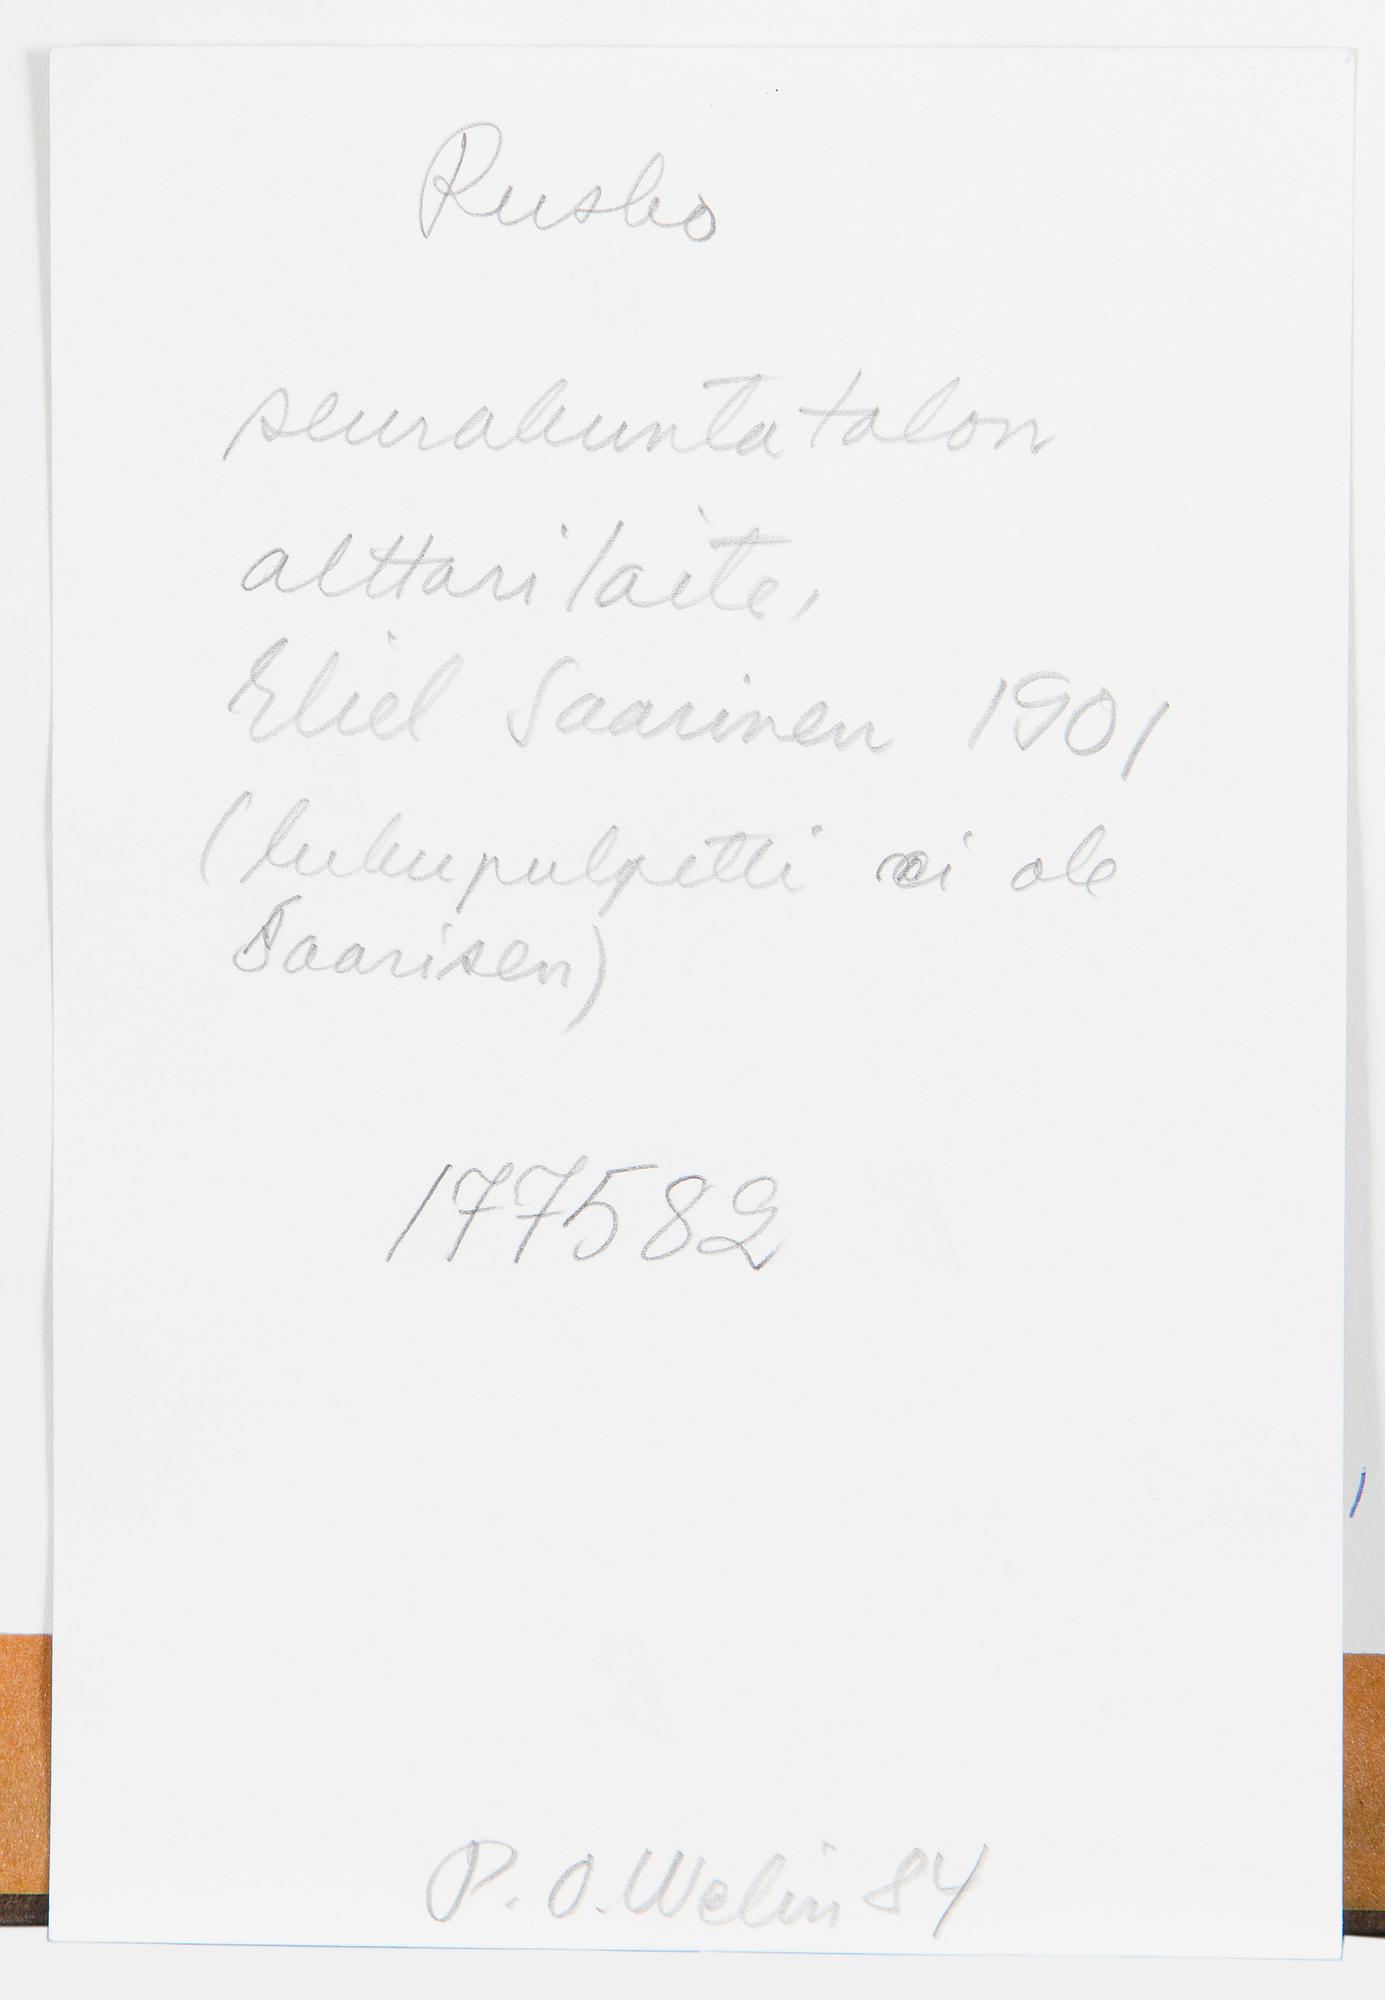 Rusko
seurakuntatalon
alttarilaite,
Eliel Saarinen 1901
(lukupulpetti ei ole
Saarisen)
177582
P.O. Welin 84